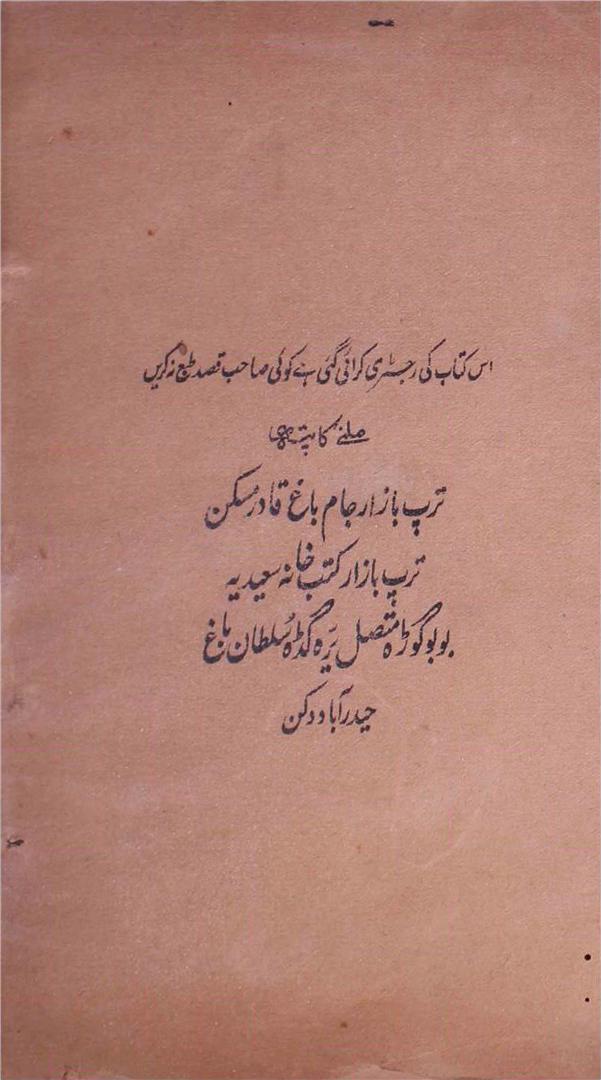 اس کتاب کی رجسٹری کرائی گئی ہے کوئی صاحب قصد طبع نہ کریں
ملنے کا پتہ
ترپ بازار جام باغ قادر مسکن
ترپ بازار کتب خانہ سعیدیہ
بوبوگوڑہ متصل سلطان باغ
حیدرآباد دکن